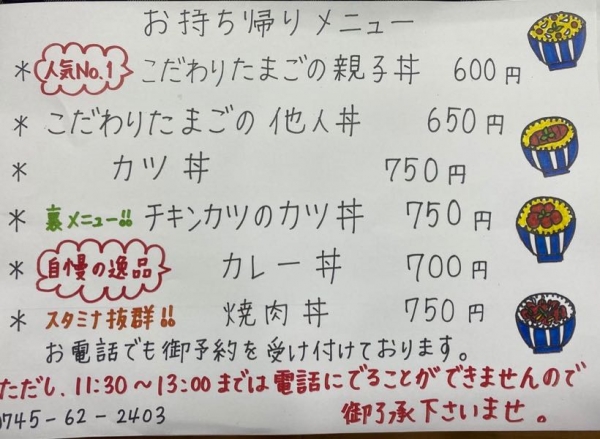 お持ち帰りメニュー
* 人気No.1 こだわりたまごの親子丼 600円
* こだわりたまごの他人丼 650円
* カツ丼 750円
* 裏メニュー!! チキンカツのカツ丼 750円
* 自慢の逸品 カレー丼 700円
* スタミナ抜群!! 焼肉丼 750円
お電話でも御予約を受け付けております。
ただし、11:30〜13:00までは電話にでることができませんので
0745-62-2403 御了承下さいませ。